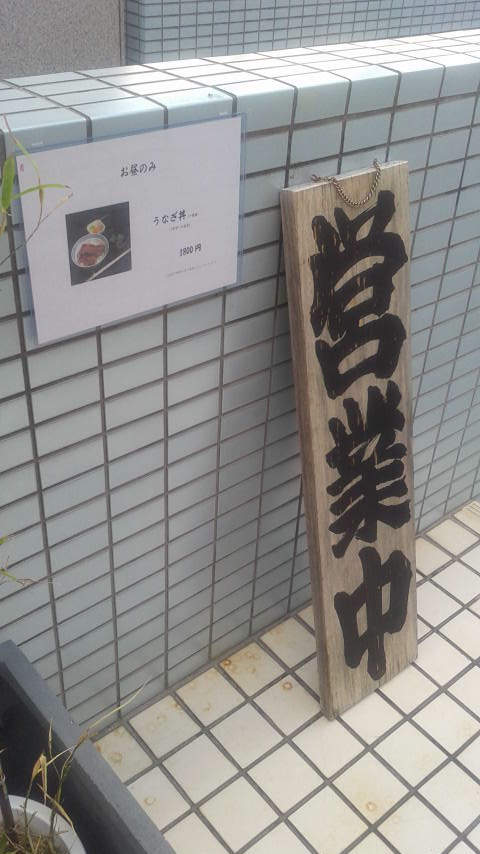 お昼のみ
うなぎ丼
1800円
営業中